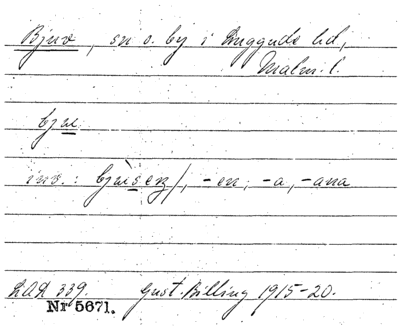 Bjuv, sn o. by i Luggude hd,
Malm. l.
bju
inv.: bju̇seṇ/, -en; -a, -ana
DAL 339. Gust. Billing 1915-20.
Nr 5671.